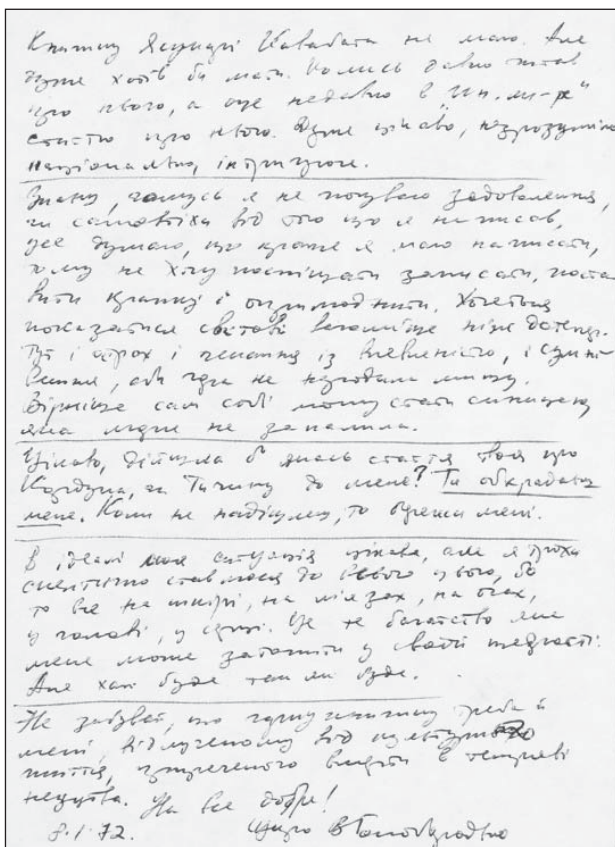 Книжки Ясунарі Кавабата не маю. Але
дуже хотів би мати. Колись давно читав
про нього, а оце недавно в "Ин. ли-ре"
статтю про нього. Дуже цікаво,
національно, інтригує.
Знаєш, чомусь я не почуваю задоволення,
чи самовтіхи від того що я написав,
усе думаю, що краще я маю написати,
тому не хочу поспішати записати, поста
вити крапку і оприлюднити. Хочеться
показатися світові вагоміше ніж дотепер.
Тут і страх і чекання із впевненістю, і сумні
вання, аби гра не нагодила
Вірніше сам собі можу стати синицею
яка моря не запалила.
Цікаво, дійшла б якась стаття твоя про
чи Тичину до мене? Ти обкрадаєш
мене. Коли не надішлеш, то будеш мені.
В ідеалі моя ситуація цікава, але я трохи
скептично ставлюся до всього цього, бо
то все на шкірі, на м'язах, на очах,
у голові, у серці. Це те багатство яке
мене може затопити у своїй щедрості.
Але хай буде так як буде.
Не забувай, що гарну книжку треба й
мені, відлученому від культурного
життя, зпреченого вмерти в темряві
неуцтва. На все добре!
8.1.72. Щиро